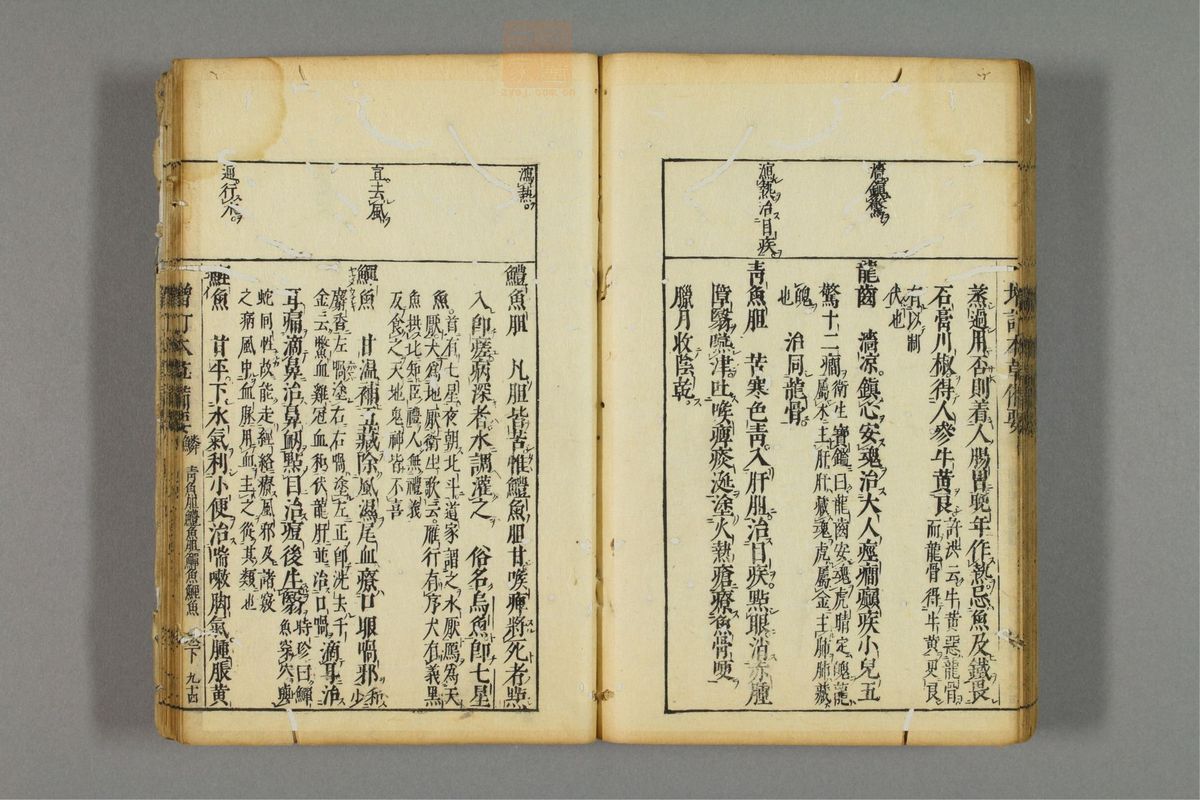 濇鎮驚
瀉熱治目疾
蒸過用否則着人腸胃晚年作熱忌魚及鐵畏
石膏川椒得人參牛黃良許洪云牛黃惡龍骨而龍骨得牛黃更良
有以制伏也
龍齒 濇凉鎮心安魂治大人痙癎癲疾小兒五
驚十二癎衛生寶鑑曰龍齒安魂虎睛定魄龍屬木主肝肝藏魂虎屬金主肺肺藏
魄也 治同龍骨
青魚胆 苦寒色青入肝胆治目疾點眼消赤腫
障翳嚥津吐喉痺痰涎塗火熱瘡療魚骨哽
臘月收陰乾
瀉熱
宜去風
通行水
鱧魚胆 凡胆皆苦惟鱧魚胆甘喉痺將死者點
入即瘥病深者水調灌之 俗名烏魚即七星
魚首有七星夜朝北斗道家謂之水厭鴈為天
厭犬為地厭衛生歌云鴈行有序犬有義黑
魚拱北知臣禮人無禮義
反食之天地鬼神皆不喜
鱓魚 甘温補五藏除風濕尾血療口眼喎邪和少
麝香左喎塗右右喎塗左正即洗去千
金云鱉血雞冠血和伏龍肝並治口喎 滴耳治
耳痛滴鼻治鼻衂點目治痘後生翳時珍曰鱓魚善穴與
蛇同性故能走經絡療風邪及諸竅
之病風中血脉用血主之從其類也
鯉魚 甘平下水氣利小便治喘嗽脚氣腫脹黃
增訂本草備要 鱗 青魚胆鱧魚胆鱓魚鯉魚 卷下 九十四